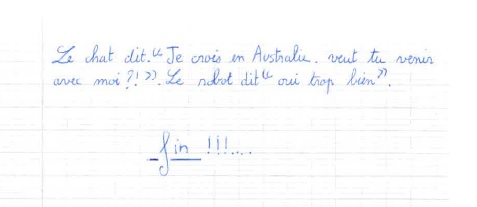 Le chat dit. « Je crois en Australie. veut tu venir
avec moi ?! ». Le robot dit « oui trop bien ».
fin !!!....